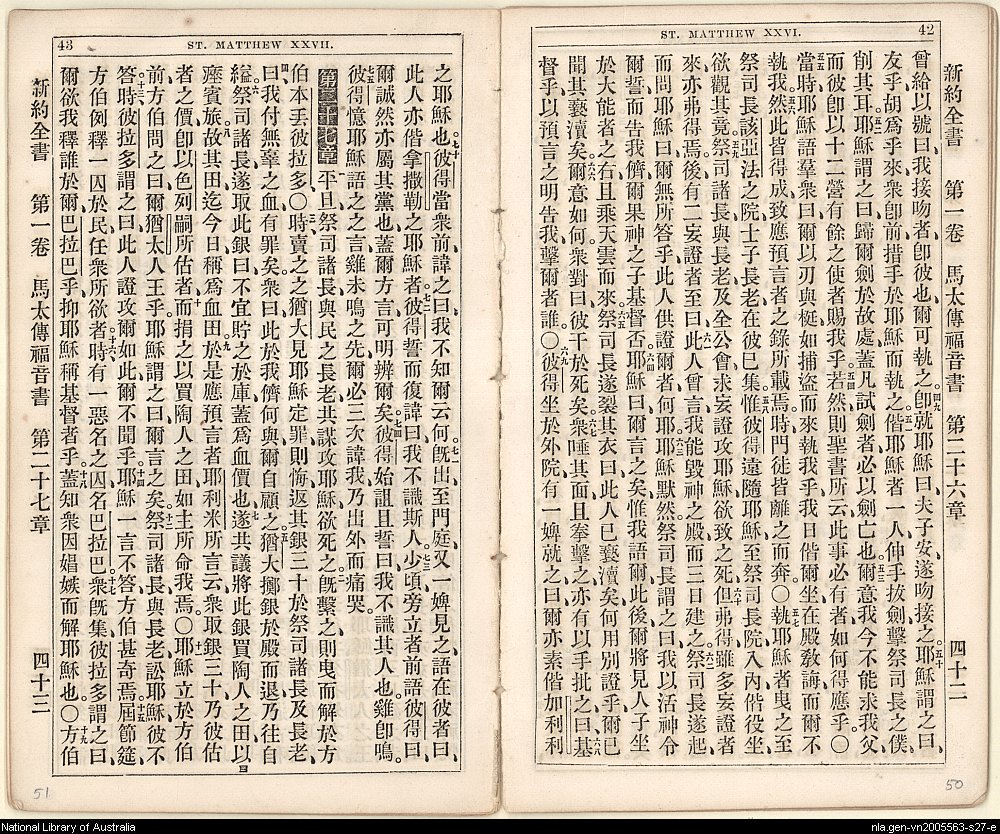 42
ST. MATTHEW XXVI.
新約全書 第一卷 馬太傳福音書 第二十六章 四十二
曾給以號曰我接吻者卽彼也爾可執之卽就耶穌曰夫子安遂吻接之耶穌謂之曰
友乎胡爲乎來衆卽前措手於耶穌而執之偕耶穌者一人伸手拔劍擊祭司長之僕
削其耳耶穌謂之曰歸爾劍於故處蓋凡試劍者必以劍亡也爾意我今不能求我父
而彼卽以十二營有餘之使者賜我乎若然則聖書所云此事必有者如何得應乎〇
當時耶穌語羣衆曰爾以刃與梃如捕盜而來執我乎我日偕爾坐在殿敎誨而爾不
執我然此皆得成致應預言者之錄所載焉時門徒皆離之而奔〇執耶穌者曳之至
祭司長該亞法之院士子長老在彼已集惟彼得遠隨耶穌至祭司長院入內偕役坐
欲觀其竟祭司諸長與長老及全公會求妄證攻耶穌欲致之死但弗得雖多妄證者
來亦弗得焉後有二妄證者至曰此人曾言我能毀神之殿而三日建之祭司長遂起
而問耶穌曰爾無所答乎此人供證爾者何耶穌默然祭司長謂之曰我以活神令
爾誓而告我儕爾果神之子基督否耶穌曰爾言之矣惟我語爾此後爾將見人子坐
於大能者之右且乘天雲而來祭司長遂裂其衣曰此人已褻瀆矣何用別證乎爾已
聞其褻瀆矣爾意如何衆對曰彼干於死矣衆唾其面且拳擊之亦有以手批之曰基
督乎以預言之明告我擊爾者誰〇彼得坐於外院有一婢就之曰爾亦素偕加利利
50
43
ST. MATTHEW XXVII.
之耶穌也彼得當衆前諱之曰我不知爾云何旣出至門庭又一婢見之語在彼者曰
此人亦偕拿撒勒之耶穌者彼得誓而復諱曰我不識斯人少頃旁立者前語彼得曰
爾誠然亦屬其黨也蓋爾方言可明辨爾矣彼得始詛且誓曰我不識其人也雞卽鳴
彼得憶耶穌語之之言雞未鳴之先爾必三次諱我乃出外而痛哭
第二十七章 平旦祭司諸長與民之長老共謀攻耶穌欲死之旣繫之則曳而解於方
伯本丟彼拉多〇時賣之之猶大見耶穌定罪則悔返其銀三十於祭司諸長及長老
曰我付無辜之血有罪矣衆曰此於我儕何與爾自顧之猶大擲銀於殿而退乃往自
縊祭司諸長遂取此銀曰不宜貯之於庫蓋爲血價也遂共議將此銀買陶人之田以
瘞賓旅故其田迄今日稱爲血田於是應預言者耶利米所言云衆取銀三十乃彼估
者之價卽以色列嗣所估者而捐之以買陶人之田如主所命我焉〇耶穌立於方伯
前方伯問之曰爾猶太人王乎耶穌謂之曰爾言之矣祭司諸長與長老訟耶穌彼不
答時彼拉多謂之曰此人證攻爾如此爾不聞乎耶穌一言不答方伯甚奇焉屆節筵
方伯例釋一囚於民任衆所欲者時有一惡名之囚名巴拉巴衆旣集彼拉多謂之曰
爾欲我釋誰於爾巴拉巴乎抑耶穌稱基督者乎蓋知衆因娼嫉而解耶穌也〇方伯
新約全書 第一卷 馬太傳福音書 第二十七章 四十三
51
National Library of Australia
nla.gen-vn2005563-s27-e